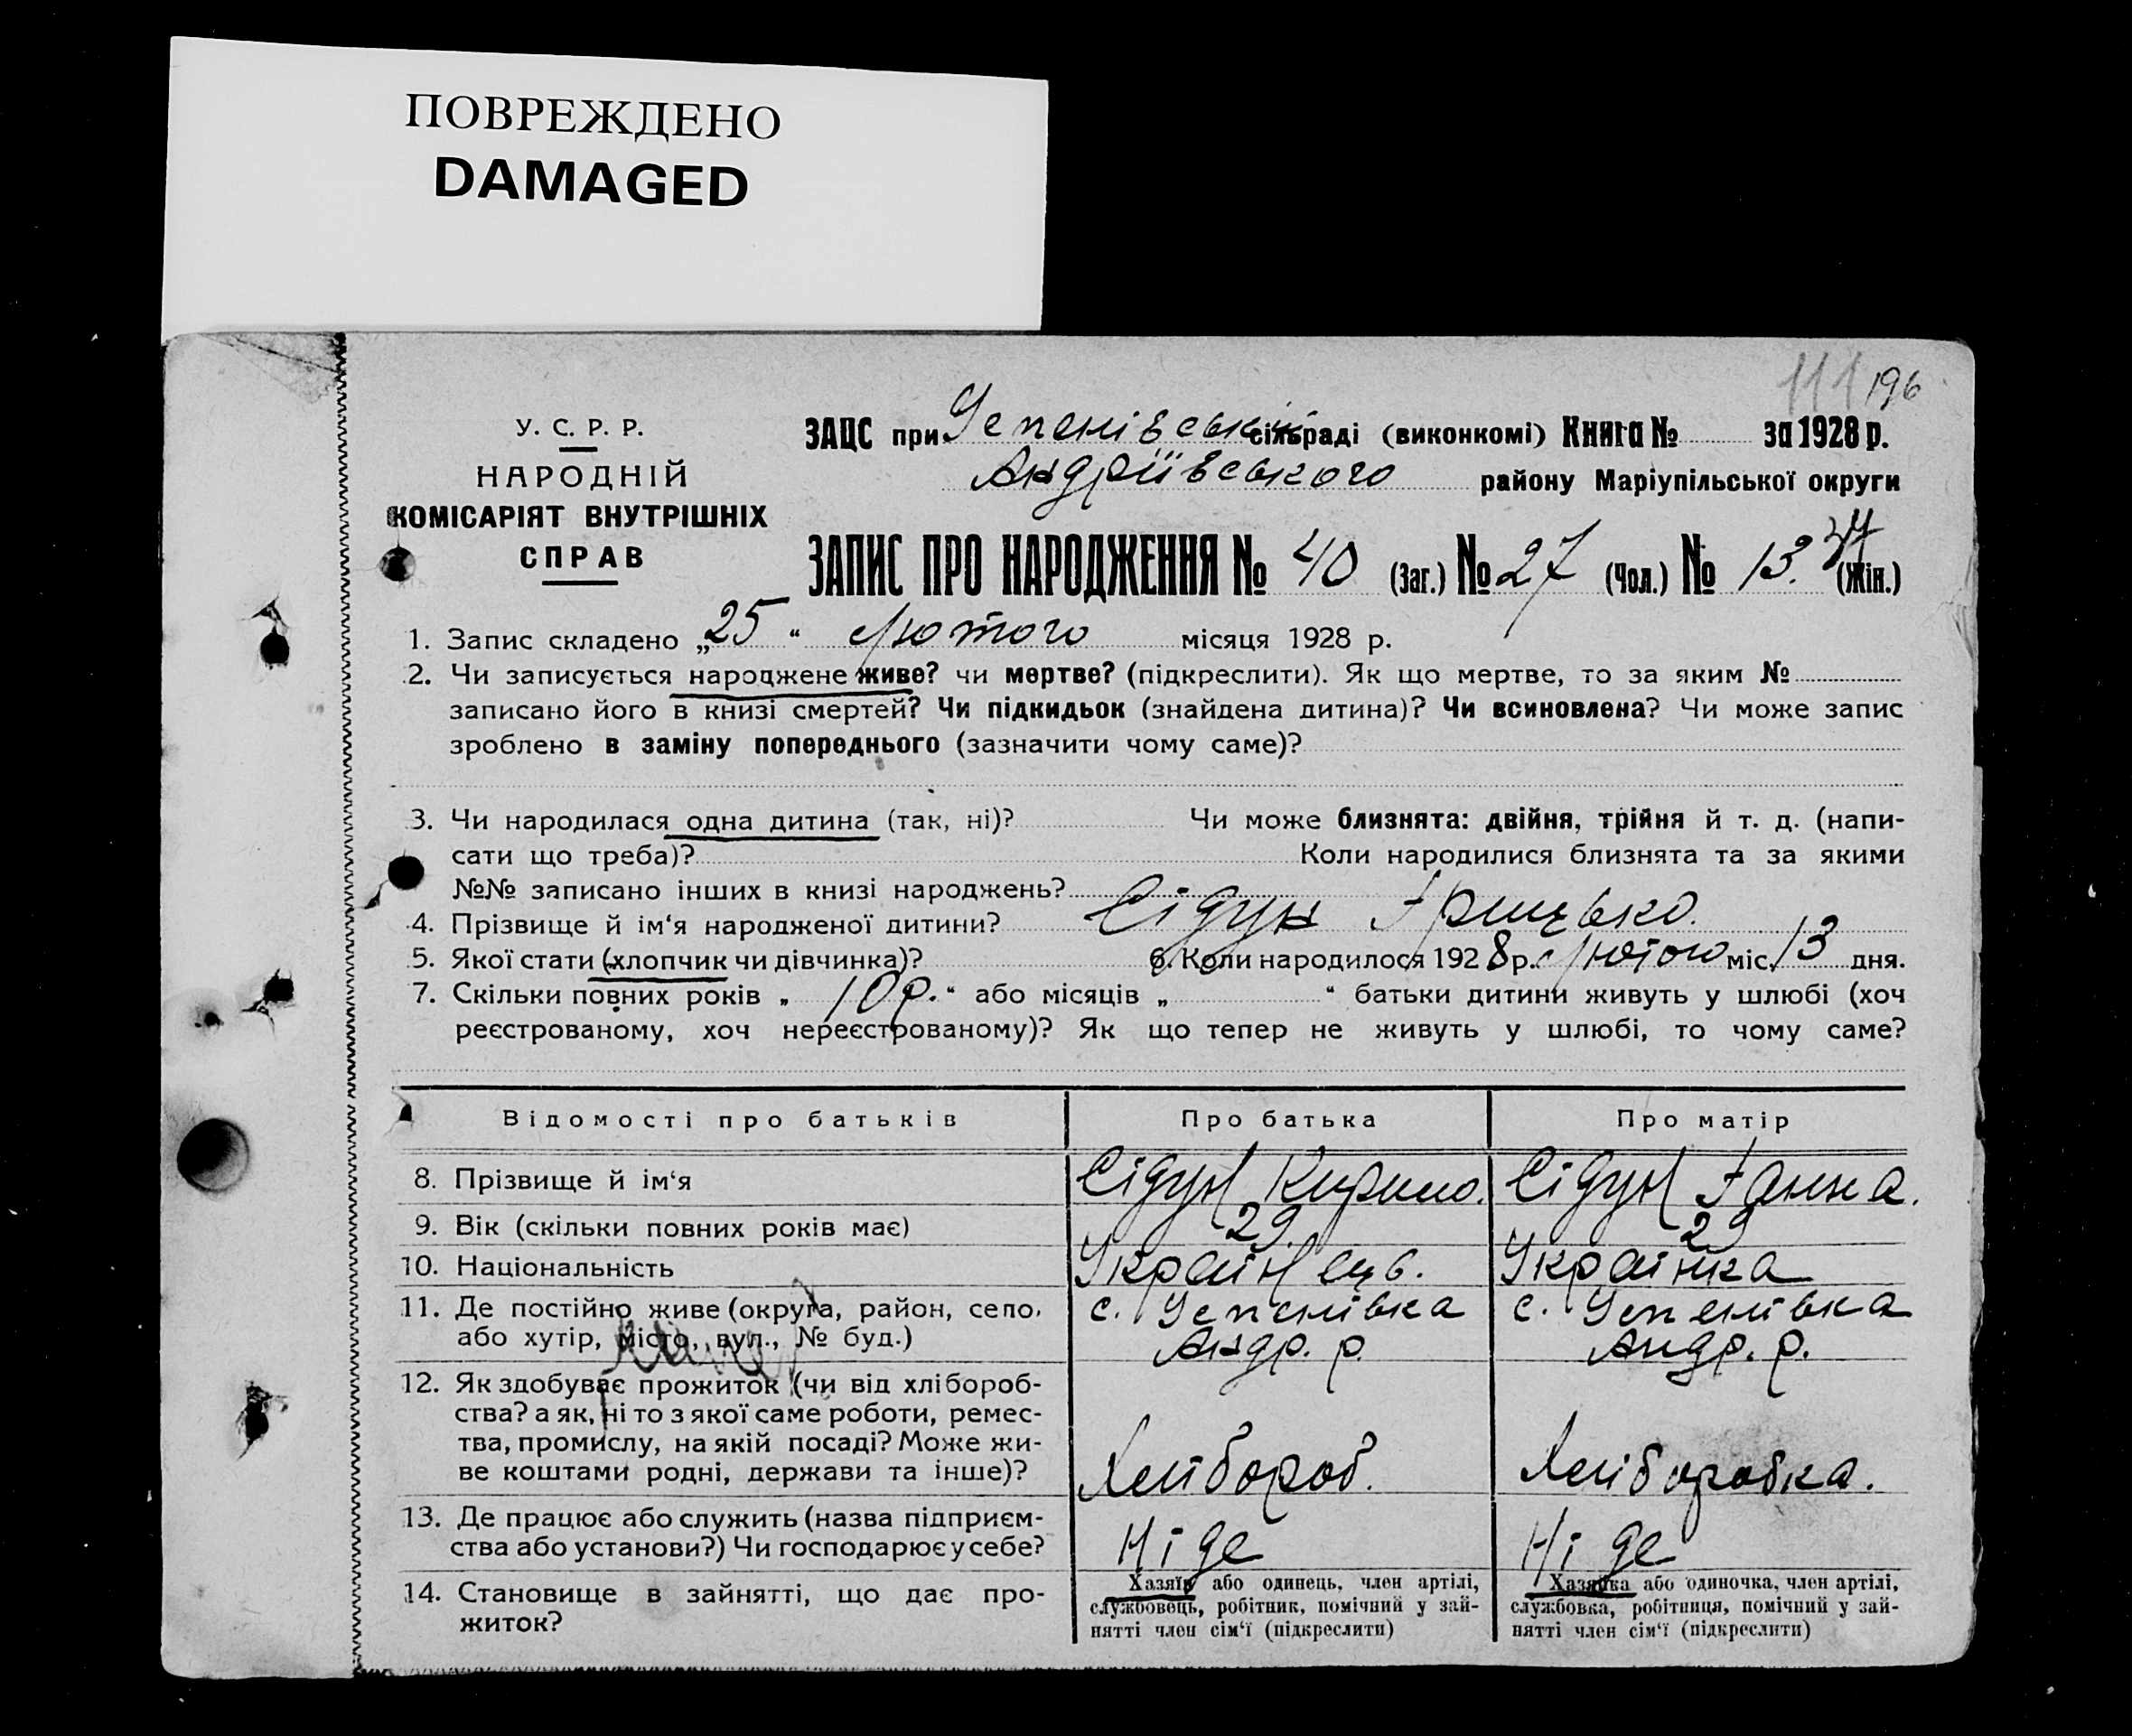 ПОВРЕЖДЕНО
DAMAGED
111 196
У. С. Р. Р.
НАРОДНІЙ
КОМІСАРІЯТ ВНУТРІШНІХ
СПРАВ
ЗАЦС при Успенівській сільраді (виконкомі) Книга № за 1928 р.
Андріївського району Маріупільської округи
ЗАПИС ПРО НАРОДЖЕННЯ № 40 (Заг.) № 27 (Чол.) № 13. (Жін.)
1. Запис складено „25“ лютого місяця 1928 р.
2. Чи записується народжене живе? чи мертве? (підкреслити). Як що мертве, то за яким №
записано його в книзі смертей? Чи підкидьок (знайдена дитина)? Чи всиновлена? Чи може запис
зроблено в заміну попереднього (зазначити чому саме)?
3. Чи народилася одна дитина (так, ні)? Чи може близнята: двійня, трійня й т. д. (напи-
сати що треба)? Коли народилися близнята та за якими
№№ записано інших в книзі народжень?
4. Прізвище й ім‘я народженої дитини? Сідун Грицько.
5. Якої стати (хлопчик чи дівчинка)? 6. Коли народилося 1928 р. лютого міс. 13 дня.
7. Скільки повних років „ 10 р. “ або місяців „ “ батьки дитини живуть у шлюбі (хоч
реєстрованому, хоч нереєстрованому)? Як що тепер не живуть у шлюбі, то чому саме?
Відомості про батьків Про батька Про матір
8. Прізвище й ім‘я Сідун Кирило. Сідун Ганна.
9. Вік (скільки повних років має) 29. 29
10. Національність Українець. Українка
11. Де постійно живе (округа, район, село, с. Успенівка с. Успенівка
або хутір, місто, вул., № буд.) Андр. р. Андр. р.
12. Як здобуває прожиток (чи від хлібороб-
ства? а як, ні то з якої саме роботи, ремес-
тва, промислу, на якій посаді? Може жи-
ве коштами родні, держави та інше)? Хлібороб. Хліборобка.
13. Де працює або служить (назва підприєм-
ства або установи?) Чи господарює у себе? Ні де Ні де
14. Становище в зайнятті, що дає про-
житок?
Хазяїн або одинець, член артілі,
службовець, робітник, помічний у зай-
нятті член сім‘ї (підкреслити)
Хазяйка або одиночка, член артілі,
службовка, робітниця, помічний у зай-
нятті член сім‘ї (підкреслити)